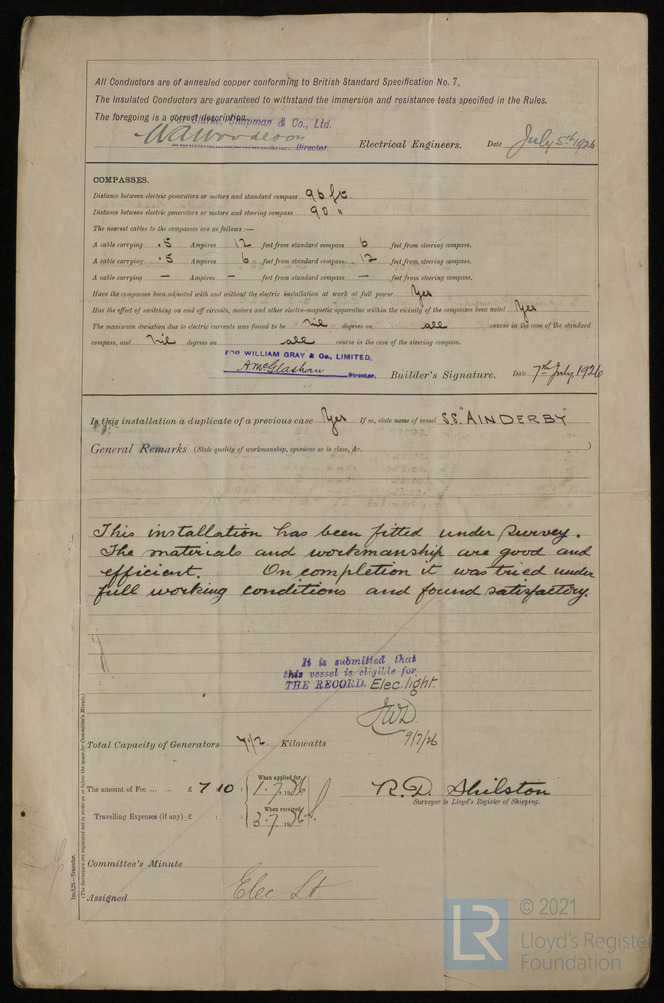 All Conductors are of annealed copper conforming to British Standard Specification No. 7.
The Insulated Conductors are guaranteed to withstand the immersion and resistance tests specified in the Rules.
The foregoing is a correct description.
Chapman & Co., Ltd.
Director. Electrical Engineers. Date July 5th 1926
COMPASSES.
Distance between electric generators or motors and standard compass 96 ft.
Distance between electric generators or motors and steering compass 90 "
The nearest cables to the compasses are as follows :—
A cable carrying .5 Ampères 12 feet from standard compass 6 feet from steering compass.
A cable carrying .5 Ampères 6 feet from standard compass 12 feet from steering compass.
A cable carrying — Ampères — feet from standard compass — feet from steering compass.
Have the compasses been adjusted with and without the electric installation at work at full power Yes
Has the effect of switching on and off circuits, motors and other electro-magnetic apparatus within the vicinity of the compasses been noted Yes
The maximum deviation due to electric currents was found to be nil degrees on all course in the case of the standard
compass, and nil degrees on all course in the case of the steering compass.
FOR WILLIAM GRAY & Co., LIMITED.
A McGlashan Director. Builder's Signature. Date 7th July 1926
Is this installation a duplicate of a previous case Yes If so, state name of vessel S.S. "AINDERBY"
General Remarks (State quality of workmanship, opinions as to class, &c. )
This installation has been fitted under survey.
The materials and workmanship are good and
efficient. On completion it was tried under
full working conditions and found satisfactory.
It is submitted that
this vessel is eligible for
THE RECORD. Elec. light.
JWD
9/7/26
Total Capacity of Generators 7½ Kilowatts
The amount of Fee ... ... £ 7 10 : When applied for, 1.7.1926
R.D. Shilston
Surveyor to Lloyd's Register of Shipping.
Travelling Expenses (if any) £ : : When received, 3.7.1926
Committee's Minute
Assigned Elec Lt
(The Surveyors are requested not to write on or below the space for Committee's Minute.)
© 2021
LR Lloyd's Register
Foundation